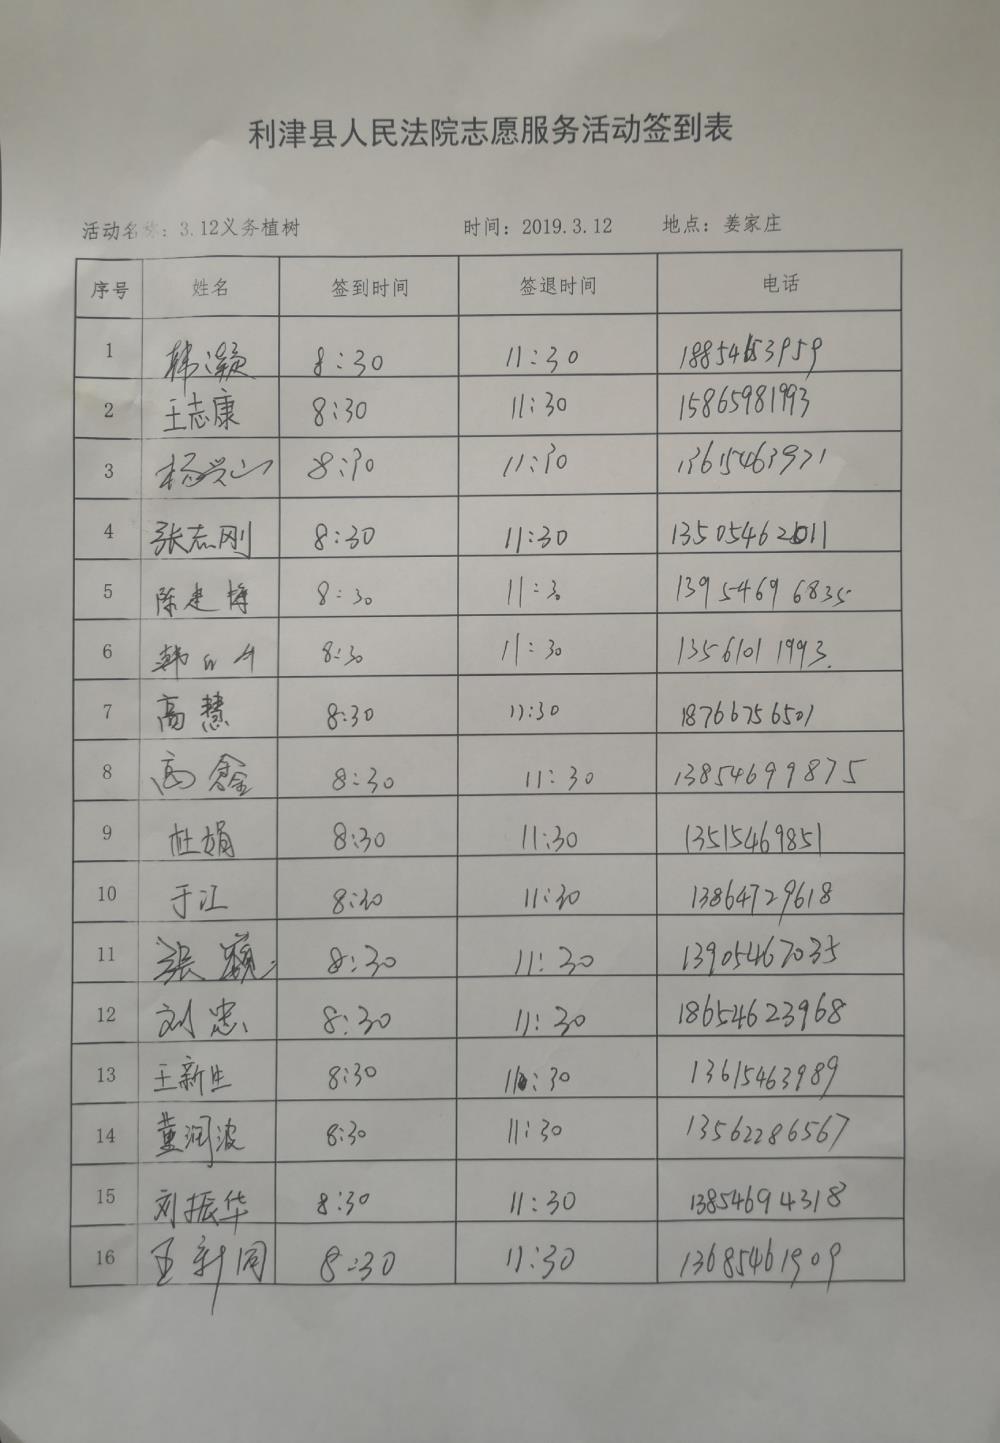 利津县人民法院志愿服务活动签到表
活动名称：3.12义务植树 时间：2019.3.12 地点：姜家庄
序号 姓名 签到时间 签退时间 电话
1 韩灏 8:30 11:30 18854653959
2 王志康 8:30 11:30 15865981993
3 杨兴山 8:30 11:30 13615463971
4 张志刚 8:30 11:30 13505462011
5 陈建梅 8:30 11:30 13954696835
6 韩 8:30 11:30 13561011993.
7 高慧 8:30 11:30 18766756501
8 高鑫 8:30 11:30 13854699875
9 杜娟 8:30 11:30 13515469851
10 于江 8:30 11:30 13864729618
11 张 8:30 11:30 13905467035
12 刘忠 8:30 11:30 18654623968
13 王新生 8:30 11:30 13615463989
14 董润波 8:30 11:30 13562286567
15 刘振华 8:30 11:30 13854694318
16 王新同 8:30 11:30 13685461909